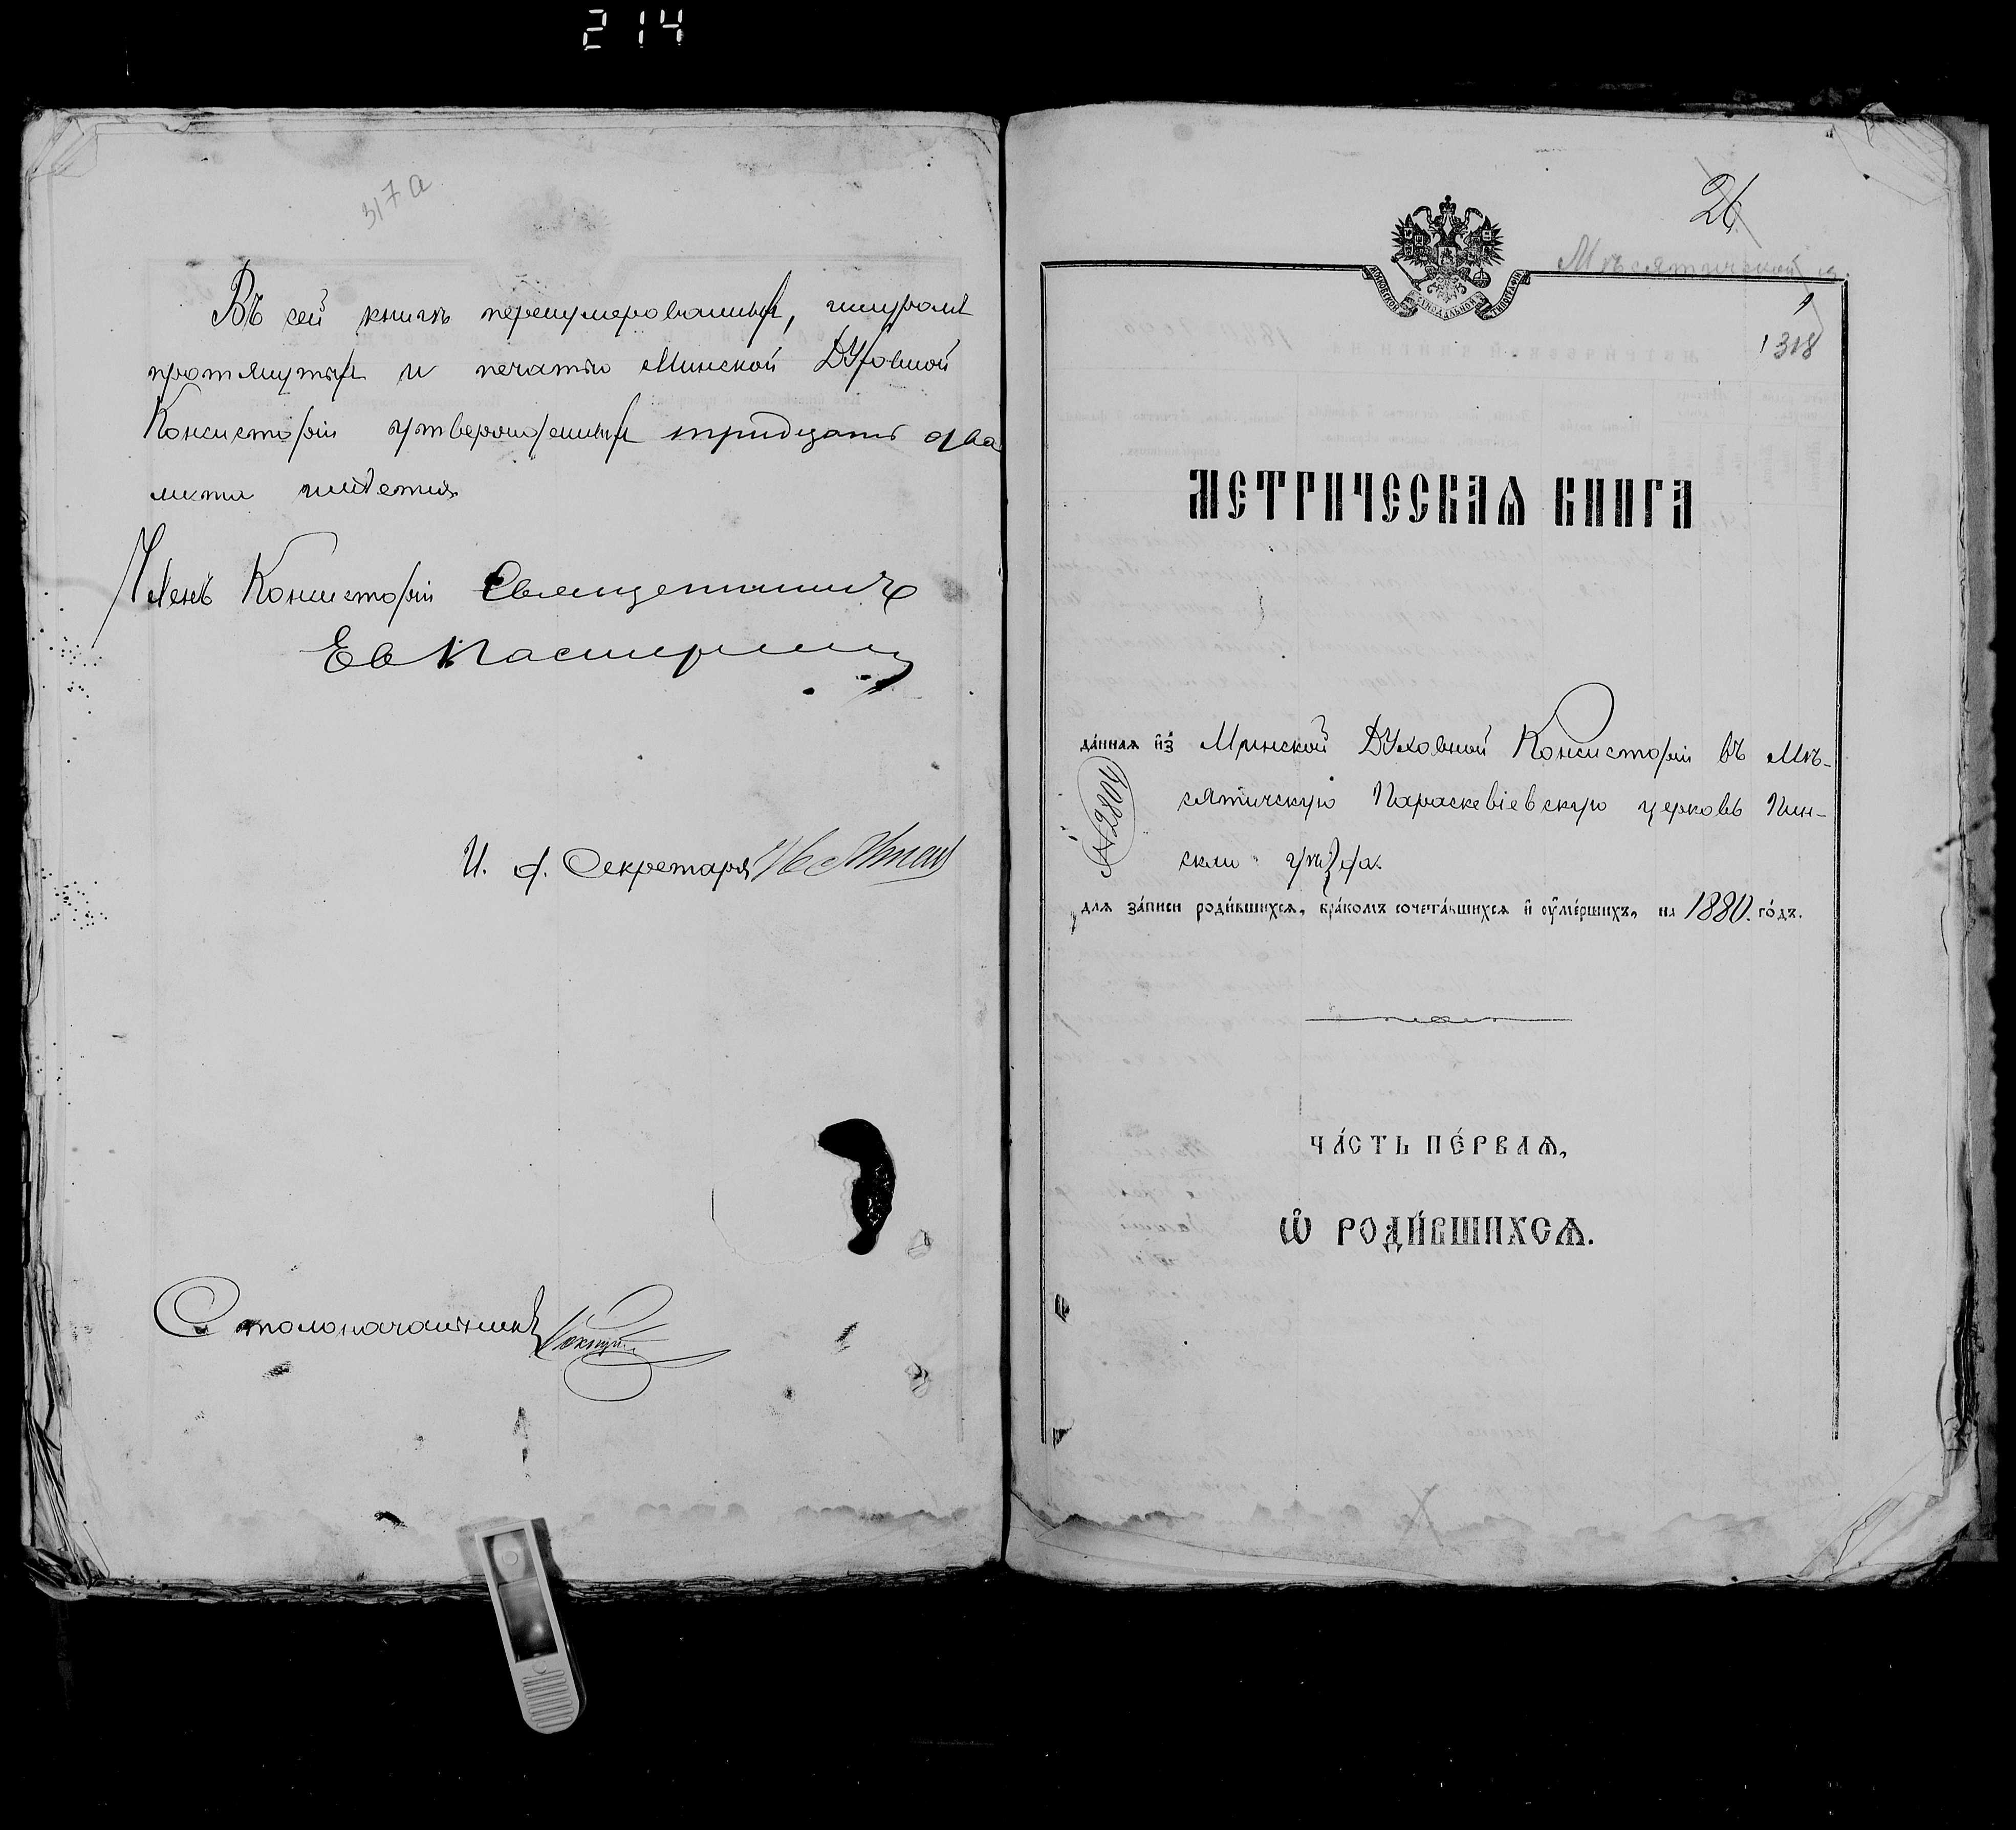 214
317а
Въ сей книгѣ перенумерованныхъ, шнуромъ
протянутыхъ и печатью Минской Духовной
Консисторіи утвержденныхъ тридцать два
листа
Членъ Консисторіи Священникъ
И. д. Секретаря
Столоначальникъ
26
Мѣсятичской ц.
МОСКОВСКОЙ СѴНОДАЛЬНОЙ ТИПОГРАФІИ
1
318
МЕТРИЧЕСКАѦ КНИГА
да́ннаѧ и҆з̾ Минской Духовной Консисторіи въ Мѣ-
сятичскую Параскевіевскую церковь Пин-
скаго уѣзда.
№ 2804
длѧ за́писи роди́вшихсѧ, бра́комъ сочета́вшихсѧ и҆ ᲂу҆ме́ршихъ, на 1880. го́дъ.
ЧА́СТЬ ПЕ́РВАѦ,
Ѽ РОДИ́ВШИХСѦ.